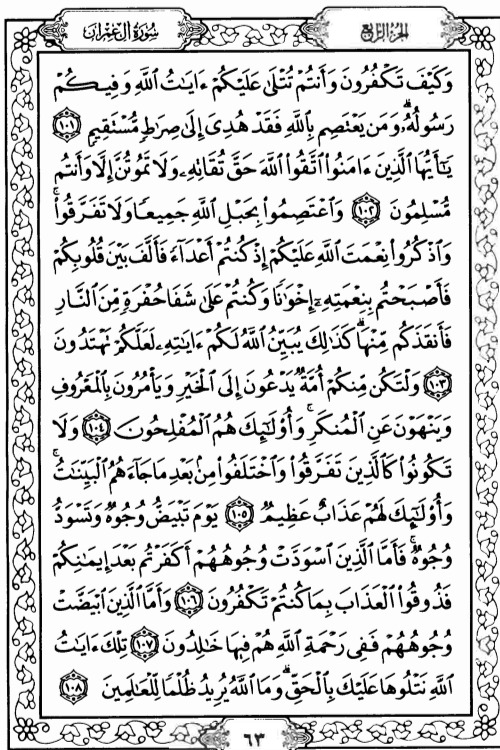 الجزء الرابع
سورة آل عمران
وَكَيْفَ تَكْفُرُونَ وَأَنتُمْ تُتْلَىٰ عَلَيْكُمْ ءَايَٰتُ ٱللَّهِ وَفِيكُمْ
رَسُولُهُۥۗ وَمَن يَعْتَصِم بِٱللَّهِ فَقَدْ هُدِىَ إِلَىٰ صِرَٰطٍ مُّسْتَقِيمٍ ١٠١
يَٰٓأَيُّهَا ٱلَّذِينَ ءَامَنُوا۟ ٱتَّقُوا۟ ٱللَّهَ حَقَّ تُقَاتِهِۦ وَلَا تَمُوتُنَّ إِلَّا وَأَنتُم
مُّسْلِمُونَ ١٠٢ وَٱعْتَصِمُوا۟ بِحَبْلِ ٱللَّهِ جَمِيعًا وَلَا تَفَرَّقُوا۟ۚ
وَٱذْكُرُوا۟ نِعْمَتَ ٱللَّهِ عَلَيْكُمْ إِذْ كُنتُمْ أَعْدَآءً فَأَلَّفَ بَيْنَ قُلُوبِكُمْ
فَأَصْبَحْتُم بِنِعْمَتِهِۦٓ إِخْوَٰنًا وَكُنتُمْ عَلَىٰ شَفَا حُفْرَةٍ مِّنَ ٱلنَّارِ
فَأَنقَذَكُم مِّنْهَاۗ كَذَٰلِكَ يُبَيِّنُ ٱللَّهُ لَكُمْ ءَايَٰتِهِۦ لَعَلَّكُمْ تَهْتَدُونَ
١٠٣ وَلْتَكُن مِّنكُمْ أُمَّةٌ يَدْعُونَ إِلَى ٱلْخَيْرِ وَيَأْمُرُونَ بِٱلْمَعْرُوفِ
وَيَنْهَوْنَ عَنِ ٱلْمُنكَرِۚ وَأُو۟لَٰٓئِكَ هُمُ ٱلْمُفْلِحُونَ ١٠٤ وَلَا
تَكُونُوا۟ كَٱلَّذِينَ تَفَرَّقُوا۟ وَٱخْتَلَفُوا۟ مِنۢ بَعْدِ مَا جَآءَهُمُ ٱلْبَيِّنَٰتُۚ
وَأُو۟لَٰٓئِكَ لَهُمْ عَذَابٌ عَظِيمٌ ١٠٥ يَوْمَ تَبْيَضُّ وُجُوهٌ وَتَسْوَدُّ
وُجُوهٌۚ فَأَمَّا ٱلَّذِينَ ٱسْوَدَّتْ وُجُوهُهُمْ أَكَفَرْتُم بَعْدَ إِيمَٰنِكُمْ
فَذُوقُوا۟ ٱلْعَذَابَ بِمَا كُنتُمْ تَكْفُرُونَ ١٠٦ وَأَمَّا ٱلَّذِينَ ٱبْيَضَّتْ
وُجُوهُهُمْ فَفِى رَحْمَةِ ٱللَّهِ هُمْ فِيهَا خَٰلِدُونَ ١٠٧ تِلْكَ ءَايَٰتُ
ٱللَّهِ نَتْلُوهَا عَلَيْكَ بِٱلْحَقِّۗ وَمَا ٱللَّهُ يُرِيدُ ظُلْمًا لِّلْعَٰلَمِينَ ١٠٨
٦٣